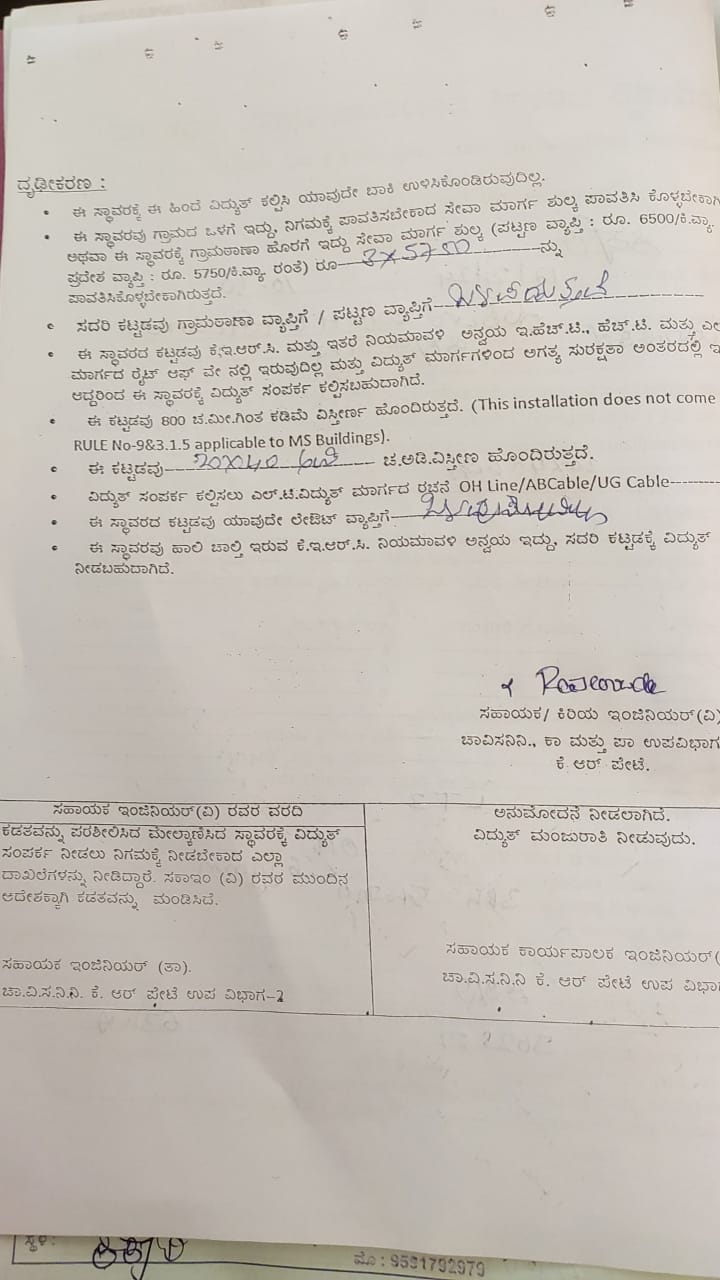 ದೃಢೀಕರಣ :
• ಈ ಸ್ಥಾವರಕ್ಕೆ ಈ ಹಿಂದೆ ವಿದ್ಯುತ್ ಕಲ್ಪಿಸಿ ಯಾವುದೇ ಬಾಕಿ ಉಳಿಸಿಕೊಂಡಿರುವುದಿಲ್ಲ.
• ಈ ಸ್ಥಾವರವು ಗ್ರಾಮದ ಒಳಗೆ ಇದ್ದು, ನಿಗಮಕ್ಕೆ ಪಾವತಿಸಬೇಕಾದ ಸೇವಾ ಮಾರ್ಗ ಶುಲ್ಕ ಪಾವತಿಸಿ ಕೊಳ್ಳಬೇಕಾಗಿ
ಅಥವಾ ಈ ಸ್ಥಾವರಕ್ಕೆ ಗ್ರಾಮಠಾಣಾ ಹೊರಗೆ ಇದ್ದು ಸೇವಾ ಮಾರ್ಗ ಶುಲ್ಕ (ಪಟ್ಟಣ ವ್ಯಾಪ್ತಿ : ರೂ. 6500/ಕಿ.ವ್ಯಾ.
ಪ್ರದೇಶ ವ್ಯಾಪ್ತಿ : ರೂ. 5750/ಕಿ.ವ್ಯಾ ರಂತೆ) ರೂ 3x5750 ನ್ನು
ಪಾವತಿಸಿಕೊಳ್ಳಬೇಕಾಗಿರುತ್ತದೆ.
• ಸದರಿ ಕಟ್ಟಡವು ಗ್ರಾಮಠಾಣಾ ವ್ಯಾಪ್ತಿಗೆ / ಪಟ್ಟಣ ವ್ಯಾಪ್ತಿಗೆ
• ಈ ಸ್ಥಾವರದ ಕಟ್ಟಡವು ಕೆ.ಇ.ಆರ್.ಸಿ. ಮತ್ತು ಇತರೆ ನಿಯಮಾವಳಿ ಅನ್ವಯ ಇ.ಹೆಚ್.ಟಿ., ಹೆಚ್.ಟಿ. ಮತ್ತು ಎಲ್
ಮಾರ್ಗದ ರೈಟ್ ಆಫ್ ವೇ ನಲ್ಲಿ ಇರುವುದಿಲ್ಲ ಮತ್ತು ವಿದ್ಯುತ್ ಮಾರ್ಗಗಳಿಂದ ಅಗತ್ಯ ಸುರಕ್ಷತಾ ಅಂತರದಲ್ಲಿ ಇ
ಆದ್ದರಿಂದ ಈ ಸ್ಥಾವರಕ್ಕೆ ವಿದ್ಯುತ್ ಸಂಪರ್ಕ ಕಲ್ಪಿಸಬಹುದಾಗಿದೆ.
• ಈ ಕಟ್ಟಡವು 800 ಚ.ಮೀ.ಗಿಂತ ಕಡಿಮೆ ವಿಸ್ತೀರ್ಣ ಹೊಂದಿರುತ್ತದೆ. (This installation does not come
RULE No-9&3.1.5 applicable to MS Buildings).
• ಈ ಕಟ್ಟಡವು 20x40 ಚ.ಅಡಿ.ವಿಸ್ತೀಣ ಹೊಂದಿರುತ್ತದೆ.
• ವಿದ್ಯುತ್ ಸಂಪರ್ಕ ಕಲ್ಪಿಸಲು ಎಲ್.ಟಿ.ವಿದ್ಯುತ್ ಮಾರ್ಗದ ರಚನೆ OH Line/ABCable/UG Cable
• ಈ ಸ್ಥಾವರದ ಕಟ್ಟಡವು ಯಾವುದೇ ಲೇಔಟ್ ವ್ಯಾಪ್ತಿಗೆ
• ಈ ಸ್ಥಾವರವು ಹಾಲಿ ಚಾಲ್ತಿ ಇರುವ ಕೆ.ಇ.ಆರ್.ಸಿ. ನಿಯಮಾವಳಿ ಅನ್ವಯ ಇದ್ದು, ಸದರಿ ಕಟ್ಟಡಕ್ಕೆ ವಿದ್ಯುತ್
ನೀಡಬಹುದಾಗಿದೆ.
ಸಹಾಯಕ/ ಕಿರಿಯ ಇಂಜಿನಿಯರ್(ವಿ)
ಚಾವಿಸನಿನಿ., ಕಾ ಮತ್ತು ಪಾ ಉಪವಿಭಾಗ
ಕೆ ಆರ್ ಪೇಟೆ.
ಸಹಾಯಕ ಇಂಜಿನಿಯರ್(ವಿ) ರವರ ವರದಿ
ಕಡತವನ್ನು ಪರಶೀಲಿಸಿದ ಮೇಲ್ಕಾಣಿಸಿದ ಸ್ಥಾವರಕ್ಕೆ ವಿದ್ಯುತ್
ಸಂಪರ್ಕ ನೀಡಲು ನಿಗಮಕ್ಕೆ ನೀಡಬೇಕಾದ ಎಲ್ಲಾ
ದಾಖಲೆಗಳನ್ನು ನೀಡಿದ್ದಾರೆ. ಸಕಾಇಂ (ವಿ) ರವರ ಮುಂದಿನ
ಆದೇಶಕ್ಕಾಗಿ ಕಡತವನ್ನು ಮಂಡಿಸಿದೆ.
ಸಹಾಯಕ ಇಂಜಿನಿಯರ್ (ತಾ).
ಚಾ.ವಿ.ಸ.ನಿ.ನಿ. ಕೆ. ಆರ್ ಪೇಟೆ ಉಪ ವಿಭಾಗ-2
ಅನುಮೋದನೆ ನೀಡಲಾಗಿದೆ.
ವಿದ್ಯುತ್ ಮಂಜುರಾತಿ ನೀಡುವುದು.
ಸಹಾಯಕ ಕಾರ್ಯಪಾಲಕ ಇಂಜಿನಿಯರ್(
ಚಾ.ವಿ.ಸ.ನಿ.ನಿ ಕೆ. ಆರ್ ಪೇಟೆ ಉಪ ವಿಭಾಗ
ಸ್ಥಳ:
ಮೊ : 9591792979